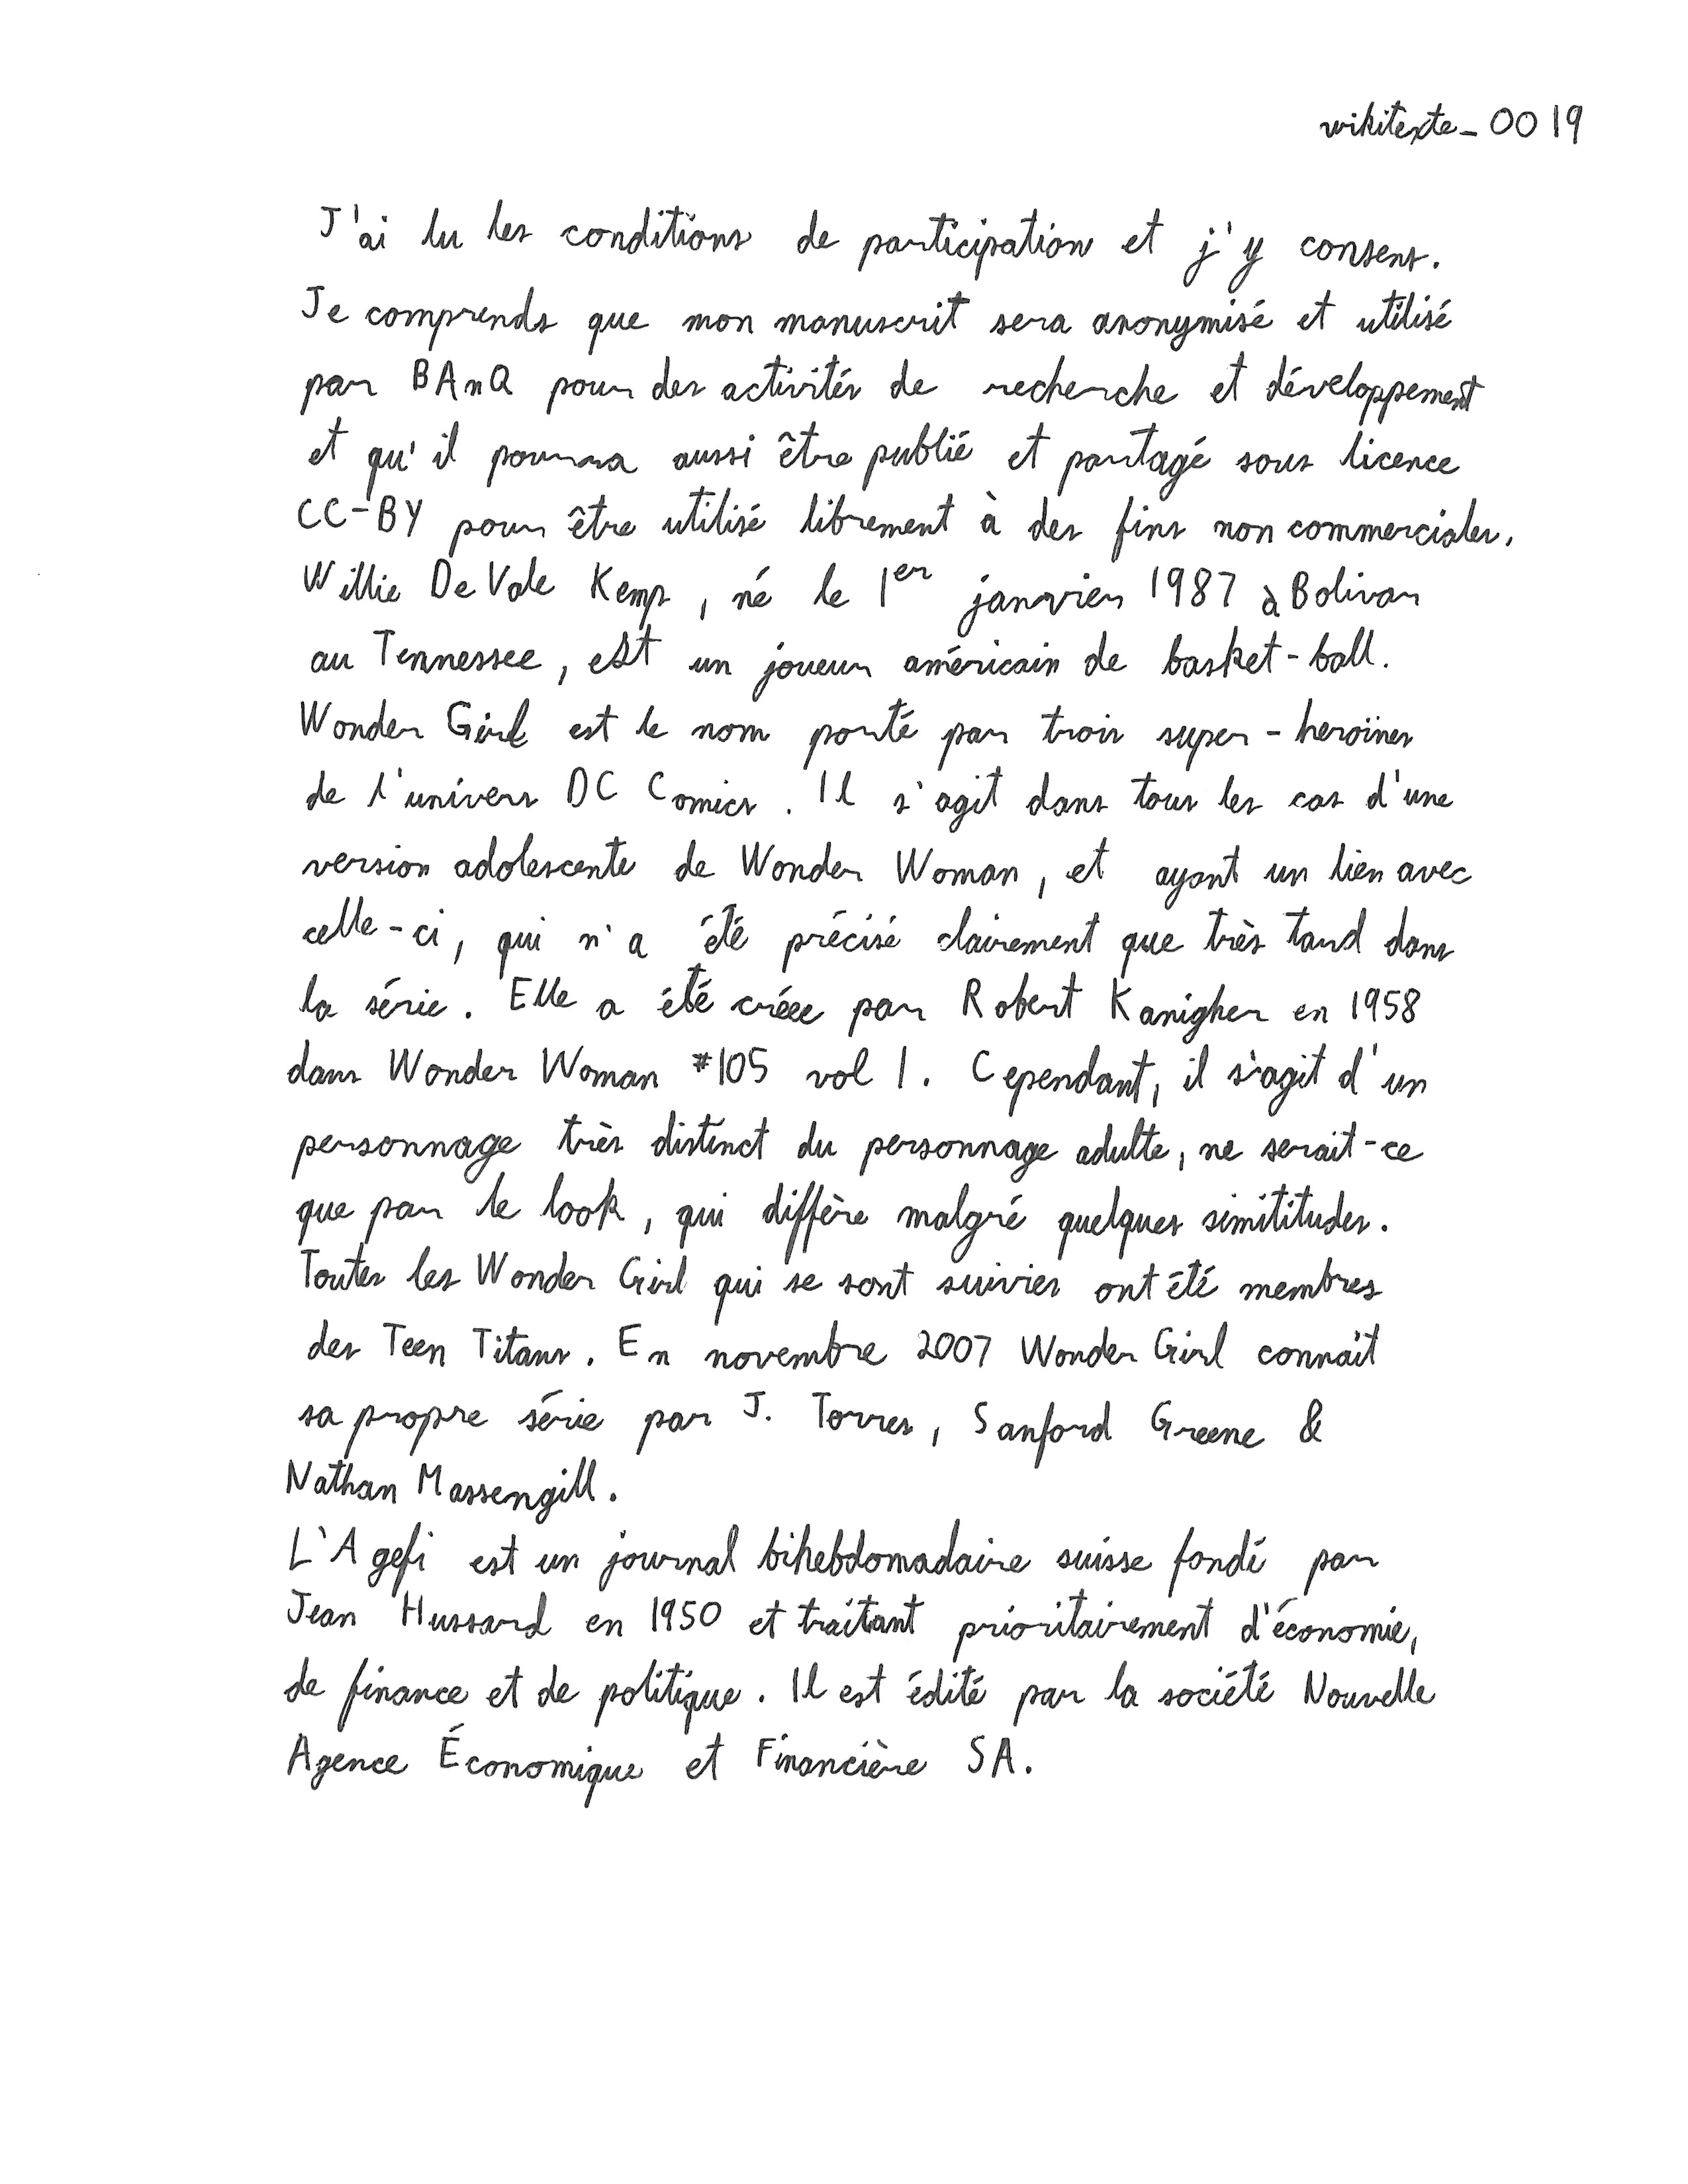 wikitexte_0019
J'ai lu les conditions de participation et j'y consens.
Je comprends que mon manuscrit sera anonymisé et utilisé
par BAnQ pour des activités de recherche et développement
et qu'il pourra aussi être publié et partagé sous licence
CC-BY pour être utilisé librement à des fins non commerciales.
Willie De Vale Kemp, né le 1er janvier 1987 à Bolivar
au Tennessee, est un joueur américain de basket-ball.
Wonder Girl est le nom porté par trois super-heroïnes
de l'univers DC Comics. Il s'agit dans tous les cas d'une
version adolescente de Wonder Woman, et ayant un lien avec
celle-ci, qui n'a été précisé clairement que très tard dans
la série. Elle a été créee par Robert Kanigher en 1958
dans Wonder Woman #105 vol 1. Cependant, il s'agit d'un
personnage très distinct du personnage adulte, ne serait-ce
que par le look, qui diffère malgré quelques simititudes.
Toutes les Wonder Girl qui se sont suivies ont été membres
des Teen Titans. En novembre 2007 Wonder Girl connaît
sa propre série par J. Torres, Sanford Greene &
Nathan Massengill.
L'Agefi est un journal bihebdomadaire suisse fondé par
Jean Hussard en 1950 et traitant prioritairement d'économie,
de finance et de politique. Il est édité par la société Nouvelle
Agence Économique et Financière SA.